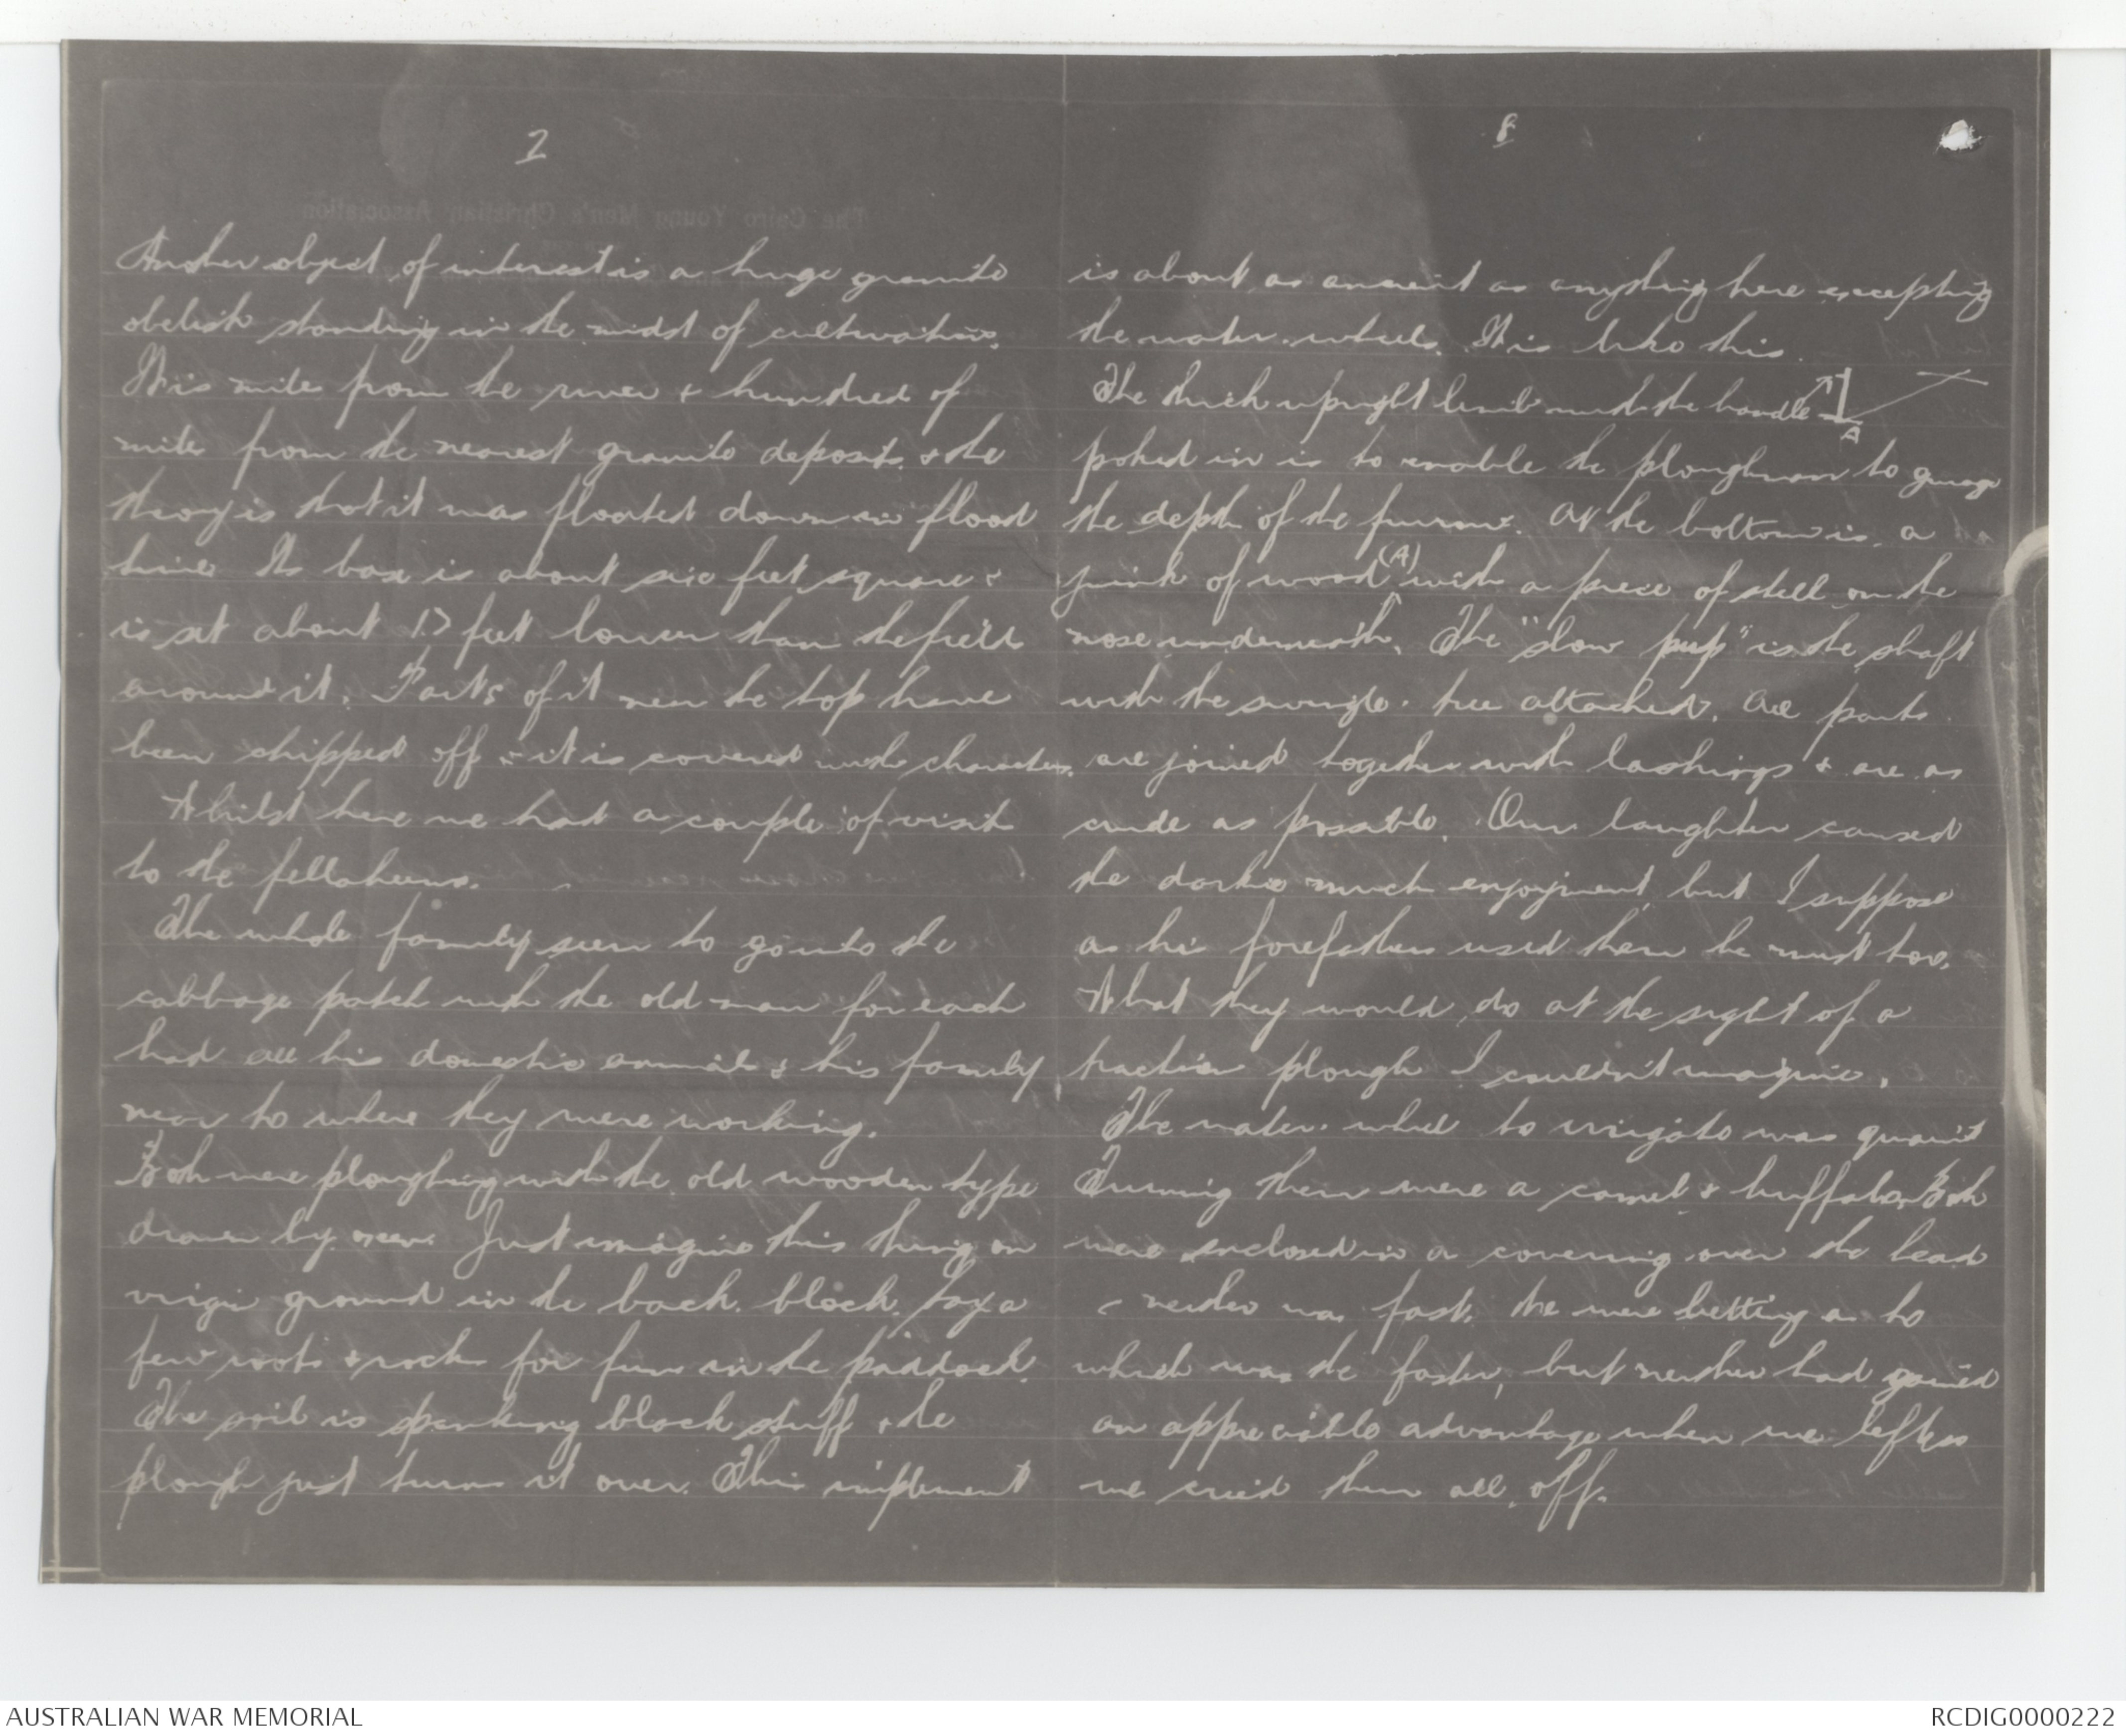 7
Another object of interest is a huge granite
obelisk standing in the midst of cultivation.
It is miles from the river & hundred of
miles from the nearest granite deposits & the
theory is that it was floated down in flood
time. Its base is about six feet square &
is set about 17 feet lower than the field
around it. Parts of it near the top have
been chipped off & it is covered with characters.
Whilst here we had a couple of visits
to the fellaheens.
The whole family seem to go into the
cabbage patch with the old man for each
had all his domestic animals & his family
near to where they were working.
Both were ploughing with the old wooden type
drawn by oxen. Just imagine this thing on
virgin ground in the back. block. Say a
few roots & rocks for fun in the paddock.
The soil is spanking black stuff & the
plough just turns it over. This implement
8
is about as ancient as anything here excepting
the water. wheels. It is like this.
The thick upright limb with the handle
A
poked in is to enable the ploughman to guage
the depth of the furrow. At the bottom is a
junk of wood (A) with a piece of stell on the
nose underneath. The "slow pup" is the shaft
with the swingle. tree attached. All parts
are joined together with lashings & are as
crude as possible. Our laughter caused
the darkie much enjoyment, but I suppose
as his forefathers used them he must too.
What they would do at the sight of a
traction plough I couldn't imagine.
The water. wheel to irrigate was quaint
Turning them were a camel & buffalo. Both
were enclosed in a covering over the head
& neither was fast. We were betting as to
which was the faster, but neither had gained
an appreciable advantage when we left so
we cried them all. off.
The Cairo Young Men's Christian Association
AUSTRALIAN WAR MEMORIAL
RCDIG0000222